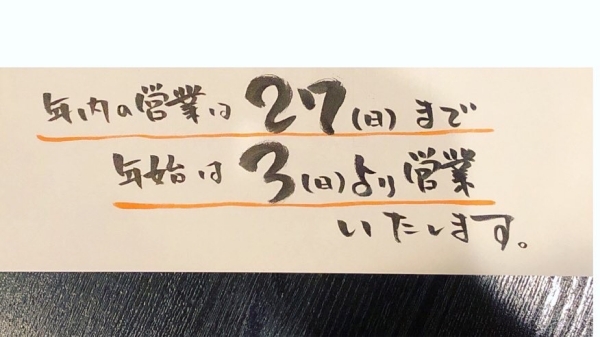 年内の営業は27(日)まで
年始は3(日)より営業
いたします。